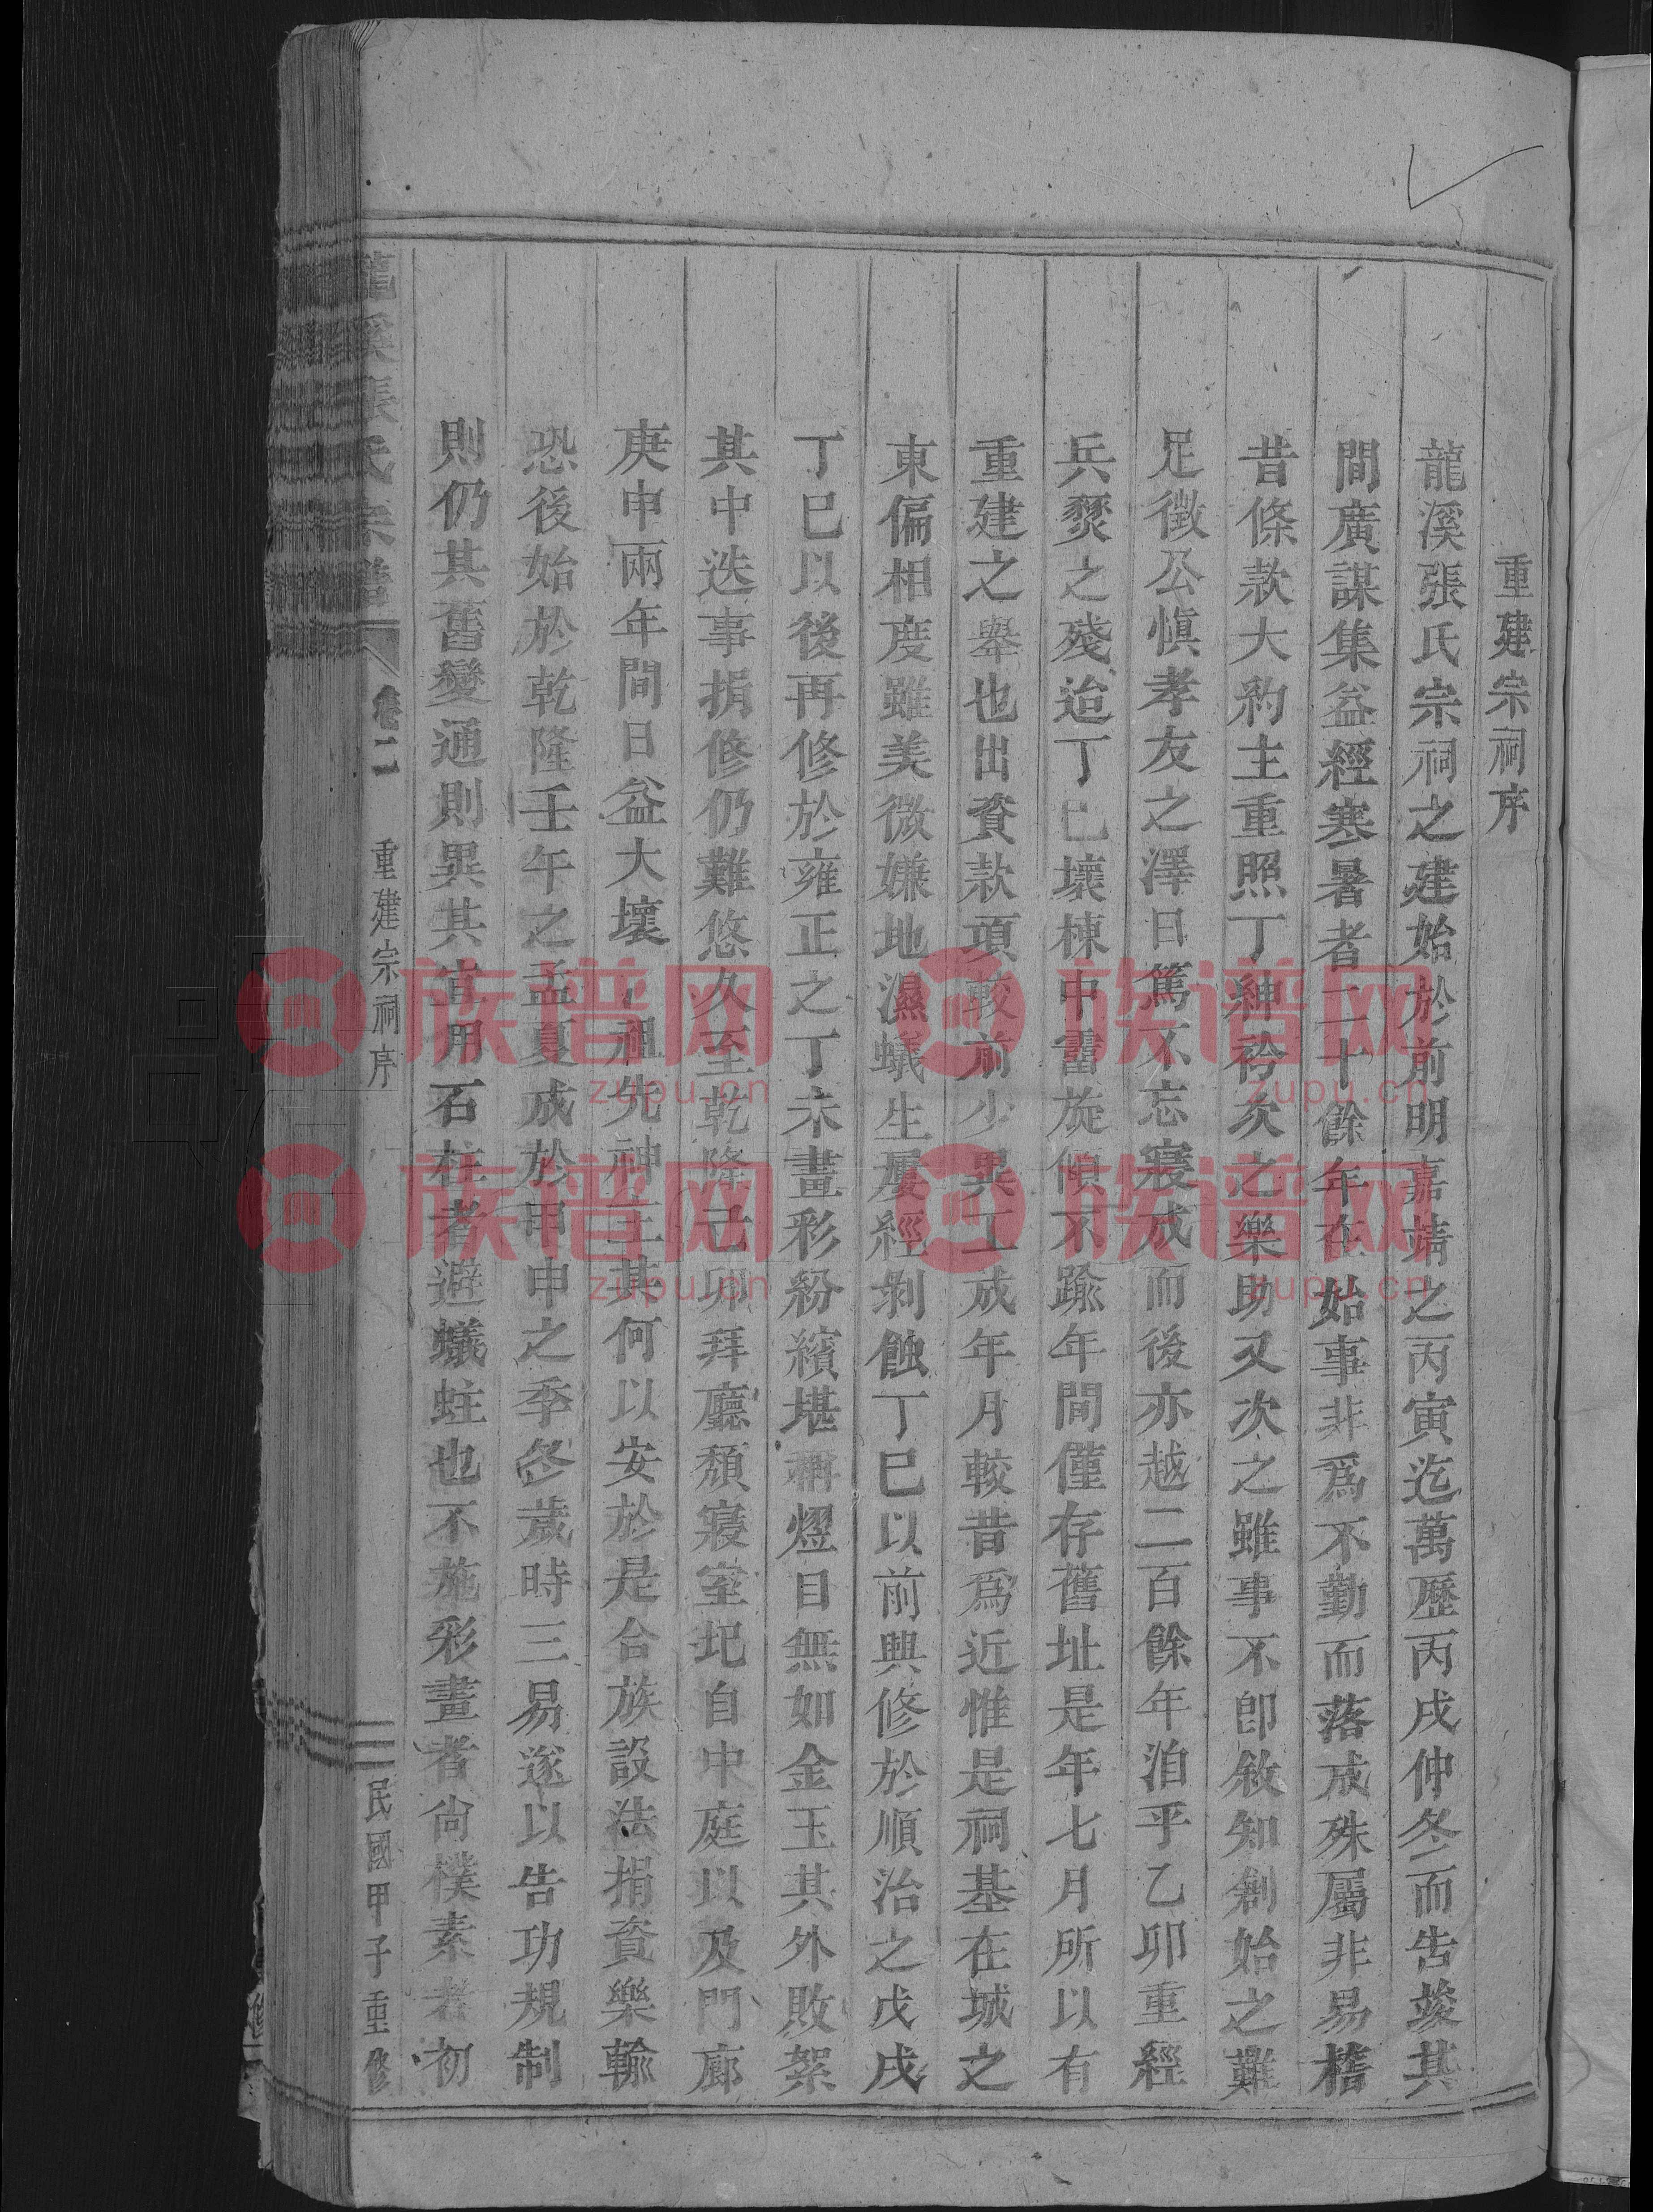 重建宗祠序
龍溪張氏宗祠之建始於前明嘉靖之丙寅迄萬歷丙戌仲冬而告竣其
間廣謀集益經寒暑者二十餘年在始事非爲不勤而落成殊屬非易稽
昔條款大約主重照丁紳衿次之樂助又次之雖事不即敘知創始之難
足徵公愼孝友之澤日篤不忘寢成而後亦越二百餘年洎乎乙卯重經
兵燹之殘迨丁巳壞棟中霤旋傾不踰年間僅存舊址是年七月所以有
重建之舉也出資款項較前少異工成年月較昔爲近惟是祠基在城之
東偏相度雖美微嫌地濕蟻生屢經剝蝕丁巳以前興修於順治之戊戌
丁巳以後再修於雍正之丁未畫彩紛繽堪稱燿目無如金玉其外敗絮
其中迭事捐修仍難悠久至乾隆己卯拜廳頹寢室圮自中庭以及門廊
庚申兩年間日益大壞祖先神主其何以安於是合族設法捐資樂輸
恐後始於乾隆壬午之孟夏成於甲申之季冬歲時三易遂以告功規制
則仍其舊變通則異其宜用石柱者避蟻蛀也不施彩畫者尚樸素者初
龍溪張氏宗譜
卷二
重建宗祠序
民國甲子重修
族谱网
zupu.cn
族谱网
zupu.cn
族谱网
zupu.cn
族谱网
zupu.cn